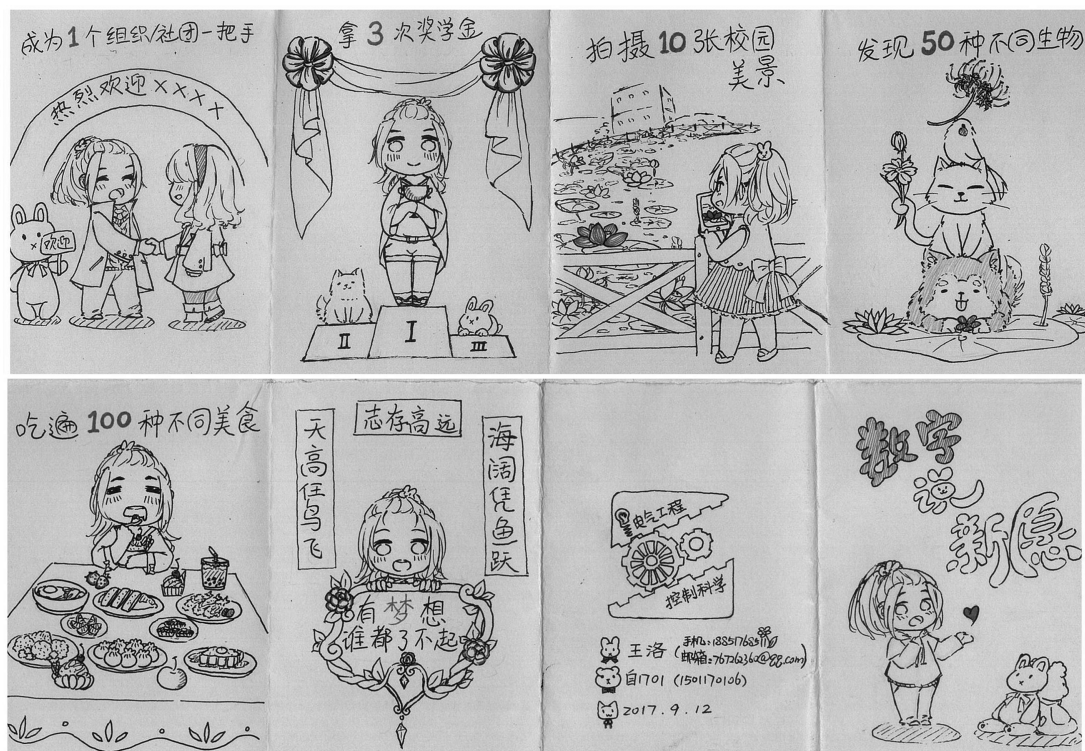 成为1个组织/社团一把手
热烈欢迎××××
欢迎
拿3次奖学金
II
I
III
拍摄10张校园
美景
发现50种不同生物
吃遍100种不同美食
志存高远
天高任鸟飞
海阔凭鱼跃
有梦想
谁都了不起
电气工程
控制科学
王洛
手机:
邮箱:767262360@qq.com)
自1701 (1501170106)
2017.9.12
数字
说
新愿